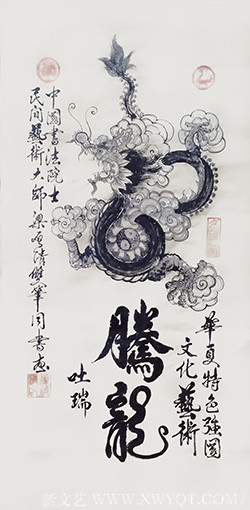 華夏特色強國
文化藝術
騰龍
吐瑞
中國書法院士
民间藝術大師梁
書画
新文艺 WWW.XWYQT.COM